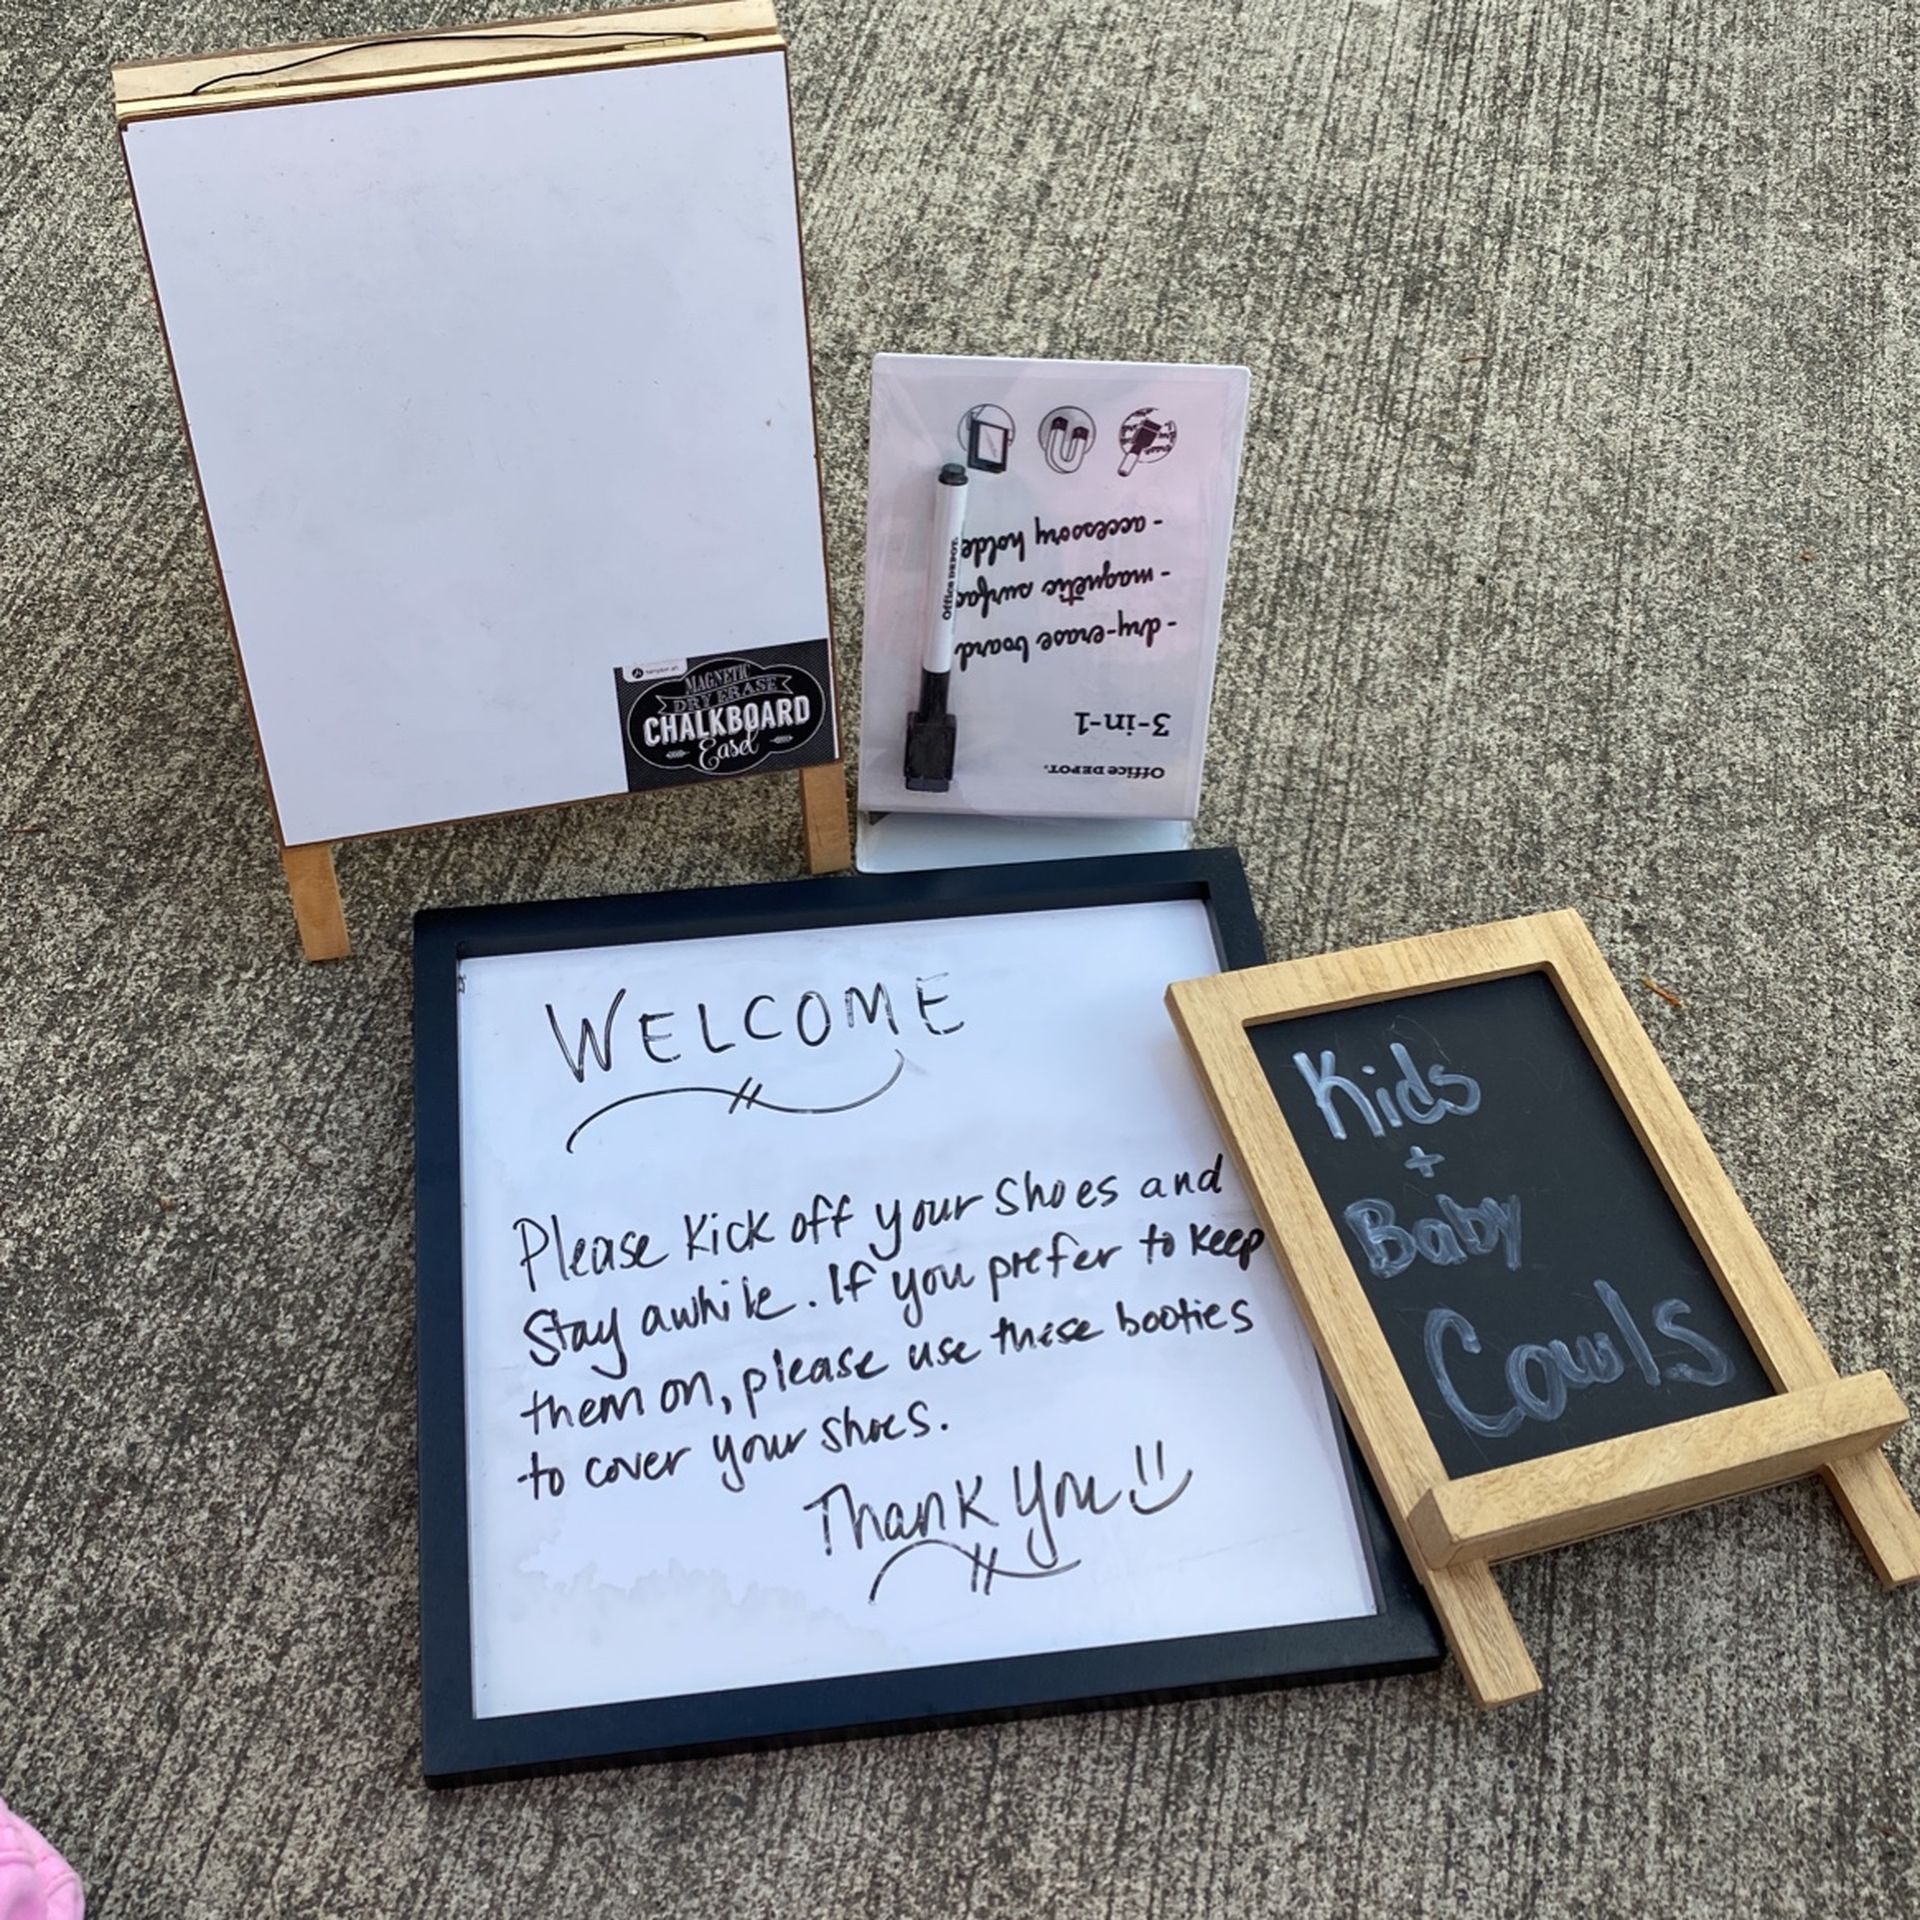 hampton art
MAGNETIC
DRY ERASE
CHALKBOARD
Easel
Office DEPOT.
3-in-1
- dry-erase board
- magnetic surfac
- accessory holde
Office DEPOT.
WELCOME
Please Kick off your shoes and
Stay awhile. If you prefer to keep
them on, please use these booties
to cover your shoes.
Thank you!!
Kids
+
Baby
Cowls